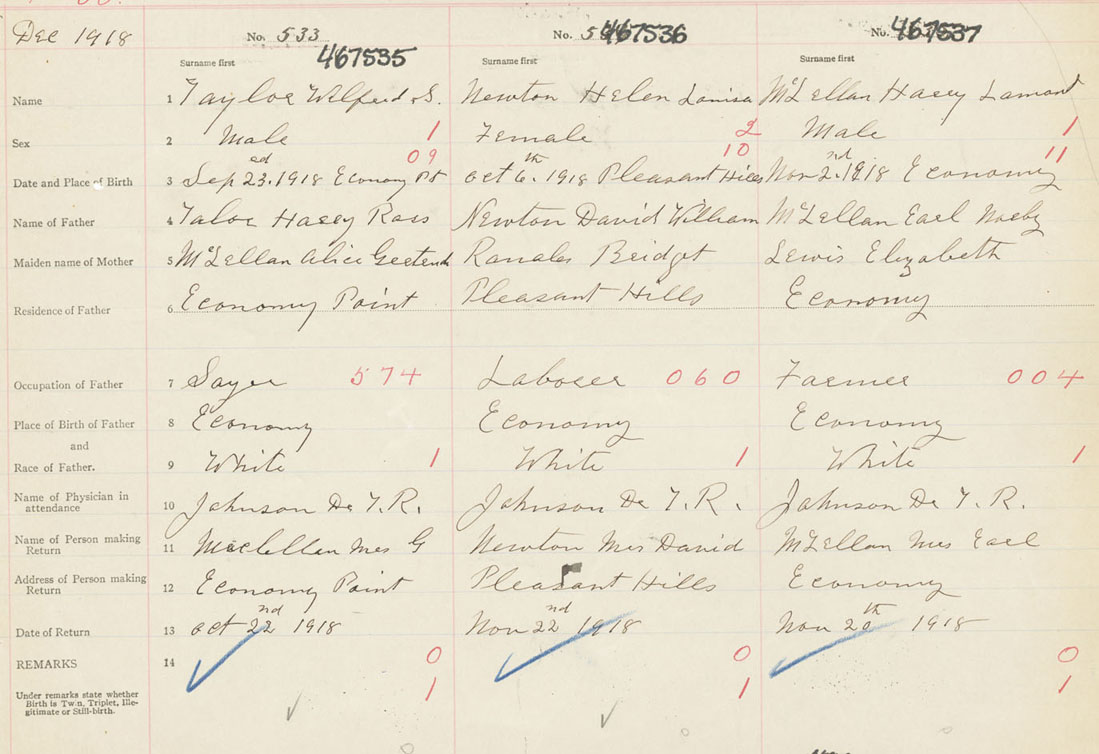 Dec 1918
No. 533
467535
No.
467536
No.
467537
Surname first
Surname first
Surname first
Name 1 Taylor Wilfred S. Newton Helen Louisa McLellan Harry Lamont
Sex 2 Male 1 Female 2 Male 1
09 10 11
Date and Place of Birth 3 Sep 23.ed 1918 Economy Pt Oct 6.th 1918 Pleasant Hills Nov 2.nd 1918 Economy
Name of Father 4 Harry Ross Newton David William McLellan Earl
Maiden name of Mother 5 McLellan Alice Gertrude Bridget Lewis Elizabeth
Residence of Father 6 Economy Point Pleasant Hills Economy
Occupation of Father 7 574 Laborer 060 Farmer 004
Place of Birth of Father 8 Economy Economy Economy
and
Race of Father. 9 White 1 White 1 White 1
Name of Physician in
attendance 10 Johnson Dr T. R. Johnson Dr T. R. Johnson Dr T. R.
Name of Person making
Return 11 Maclellan Mrs G Newton Mrs David McLellan Mrs Earl
Address of Person making
Return 12 Economy Point Pleasant Hills Economy
Date of Return 13 Oct 22nd 1918 Nov 22nd 1918 Nov 20th 1918
REMARKS 14 0 0 0
1 1 1
Under remarks state whether
Birth is Twin, Triplet, Ille-
gitimate or Still-birth.